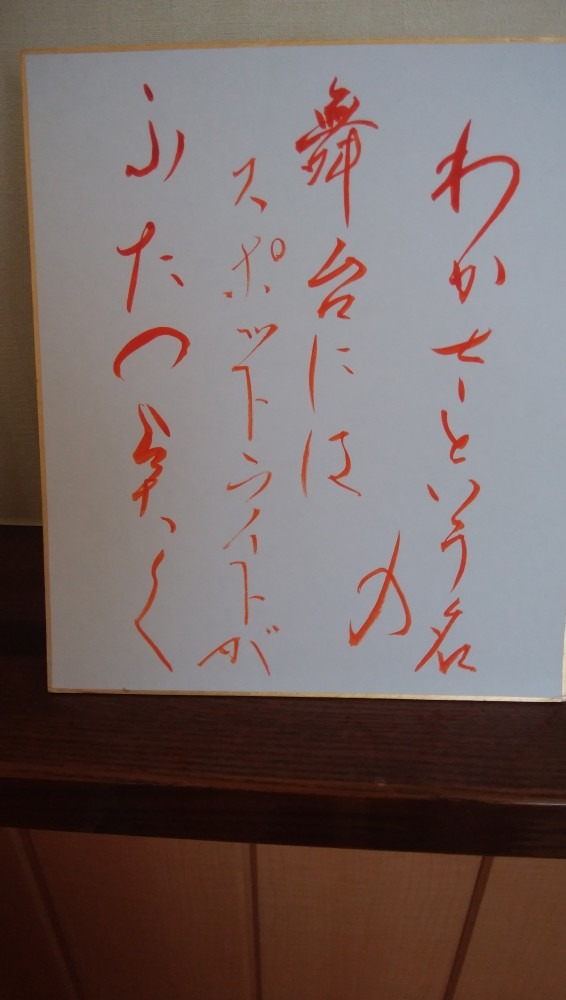 わかせーという名
の
舞台には
スポットライトが
ふたつ く